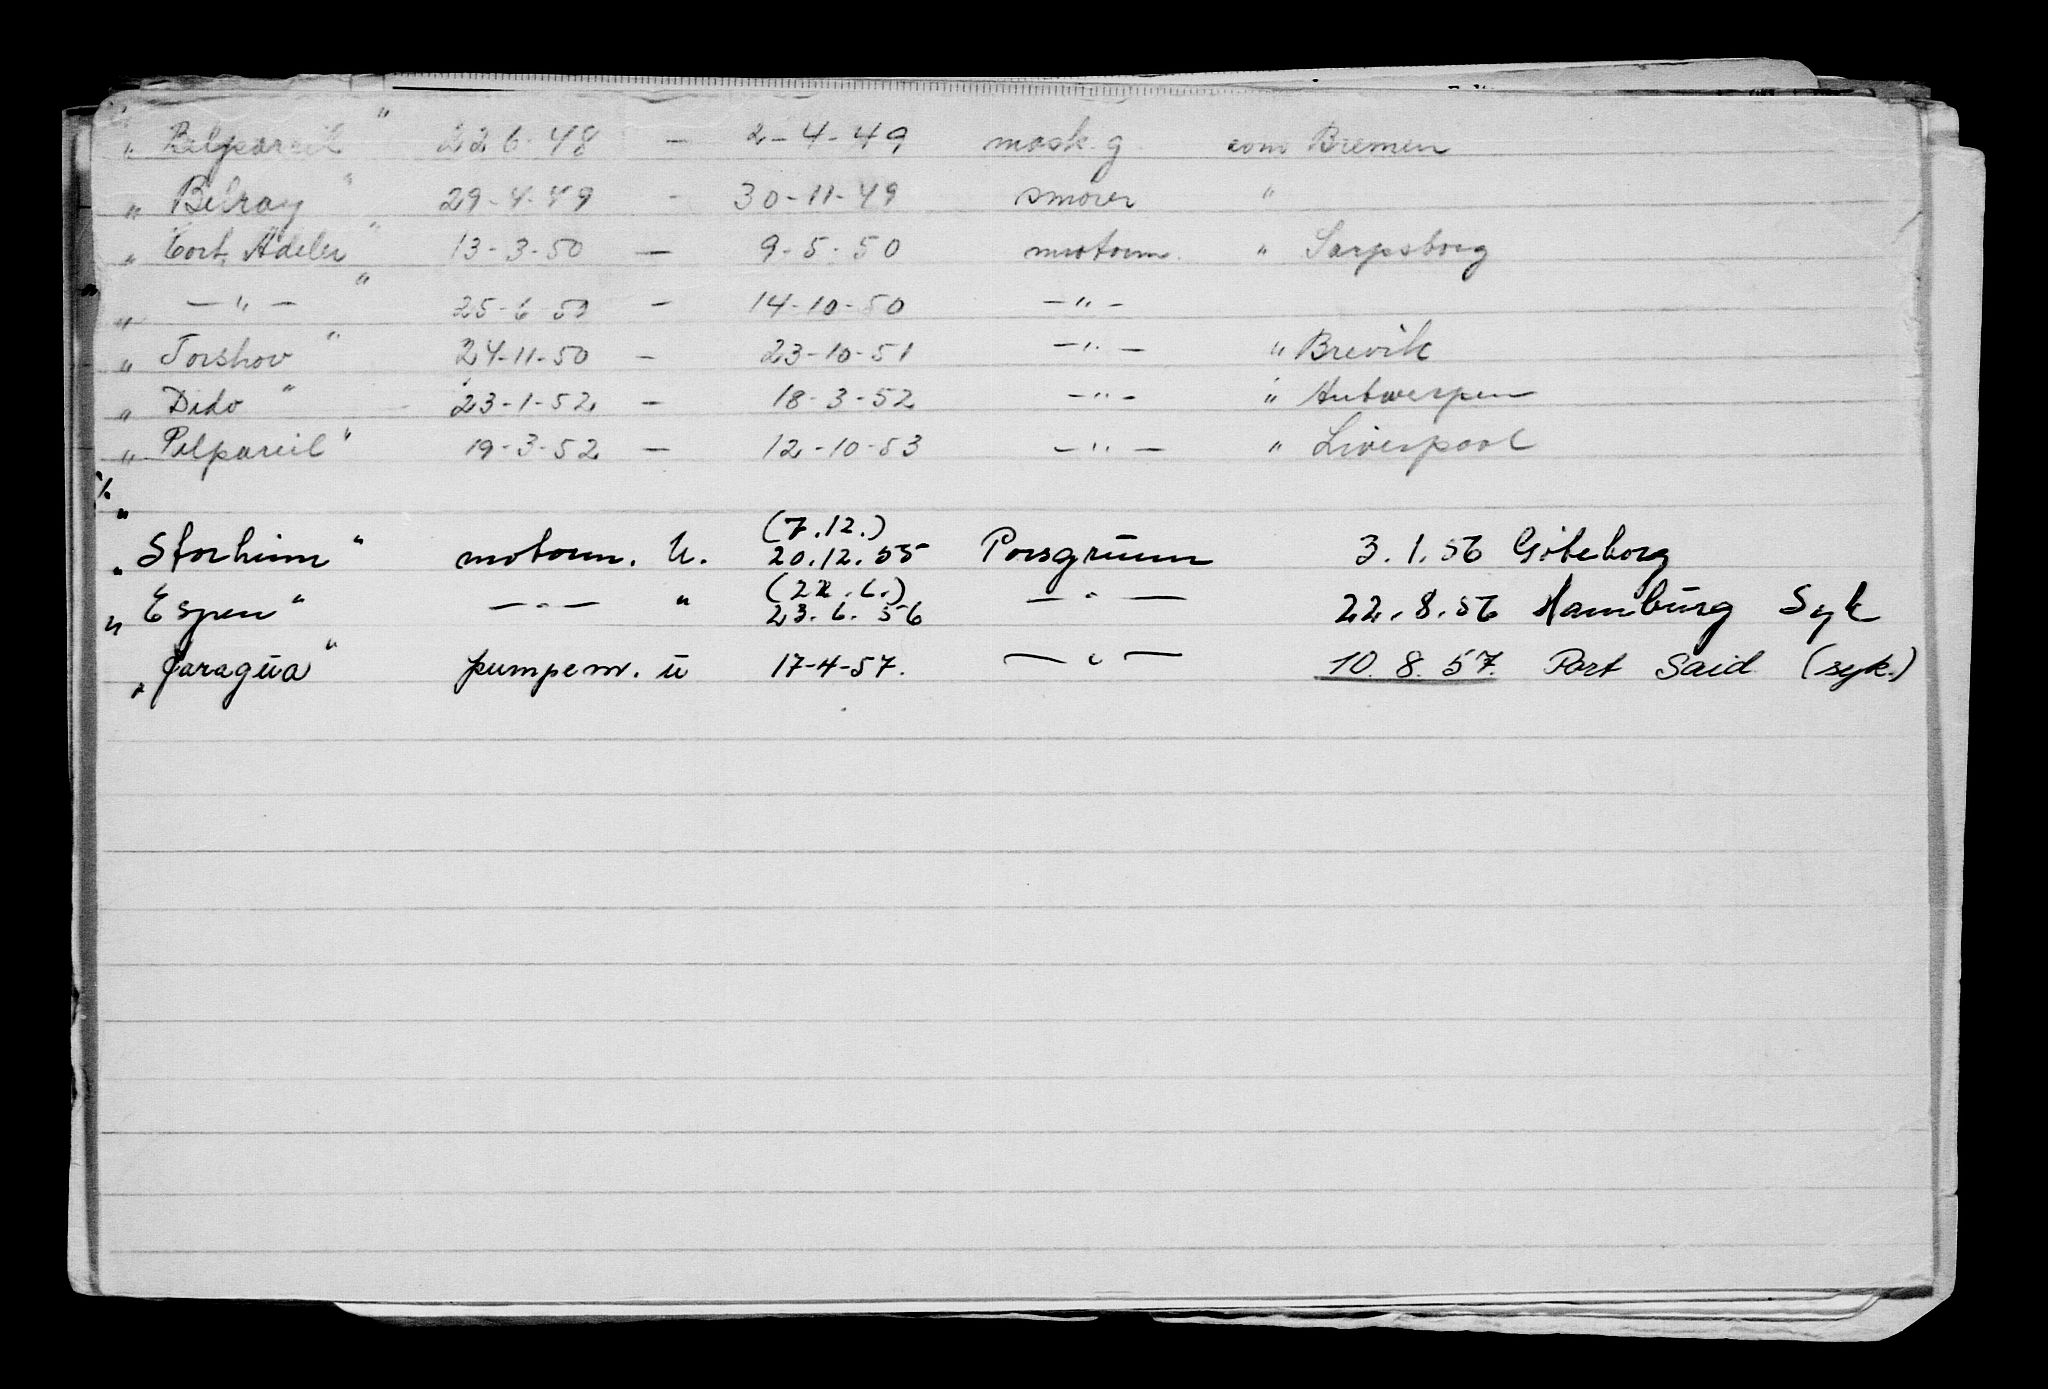 " Belpareil " 22 6-48 — 2-4-49 mask. g. Bremen
" Belray " 29-4-49 - 30-11-49 smører "
" Cort Adeler " 13-3-50 — 9-5-50 motorm. " Sarpsborg
" — " — " 25-6-50 — 14-10-50 — " —
" Torshov " 24-11-50 — 23-10-51 — " — " Brevik
" Dido " 23-1-52 — 18-3-52 — " — " Antwerpen
" Pelpareil " 19-3-52 — 12-10-53 — " — " Liverpool
(7.12.)
" Storheim " motorm. U. 20.12.55 Porsgrunn 3.1.56 Göteborg
(22.6.)
" Espen " — " — " 23.6.56 — " — 22.8.56 Hamburg Syk
" Jaragua " pumpem. u 17-4-57. — " — 10.8.57. Port Said (syk.)